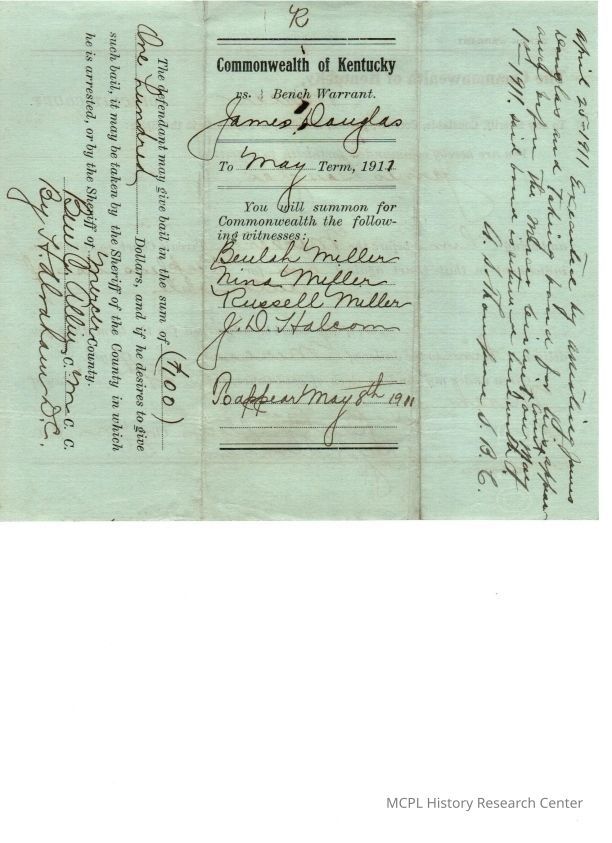 R
Commonwealth of Kentucky
vs. } Bench Warrant.
James Douglas
To May Term, 1911
You will summon for
Commonwealth the follow-
ing witnesses:
Beulah Miller
Nina Miller
Russell Miller
J. D. Halcom
appear May 8th 1911
The defendant may give bail in the sum of (100)
One hundred Dollars, and if he desires to give
such bail, it may be taken by the Sheriff of the County in which
he is arrested, or by the Sheriff of Mercer County.
Ben C Allin C. M C. C.
By H. D. C.
April 25-1911 Executed by arresting James
Douglas and taking bond for his appear
before the Mercer circuit court on May
1st 1911. said bond is returned herewith
A. S. Thompson S. B. C.
MCPL History Research Center